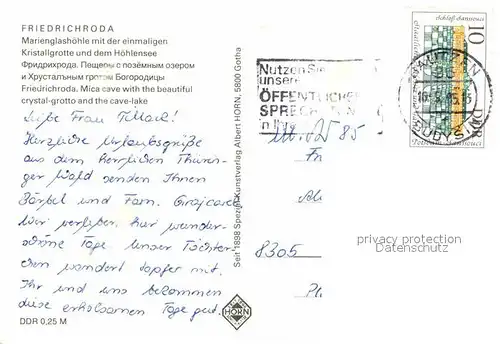 FRIEDRICHRODA
Marienglashöhle mit der einmaligen
Kristallgrotte und dem Höhlensee
Фридрихрода. Пещеры с поземным озером
и Хрустальным гротом Богородицы
Friedrichroda. Mica cave with the beautiful
crystal-grotto and the cave-lake
Liebe Frau
Herzliche Urlaubsgrüße
aus dem herrlichen Thürin-
ger Wald senden Ihnen
Bärbel und Fam.
Wir verleben hier wunder-
schöne Tage. Unser Töchter-
chen wandert tapfer mit.
Ihr und uns bekommen
diese erholsamen Tage gut.
DDR 0,25 M
Seit 1898 Spezial-Kunstverlag Albert HORN, 5800 Gotha
HORN
Nutzen Sie
unsere
ÖFFENTLICHEN
SPRECH
in Ihre
85
8305
10
DDR
privacy protection
Datenschutz